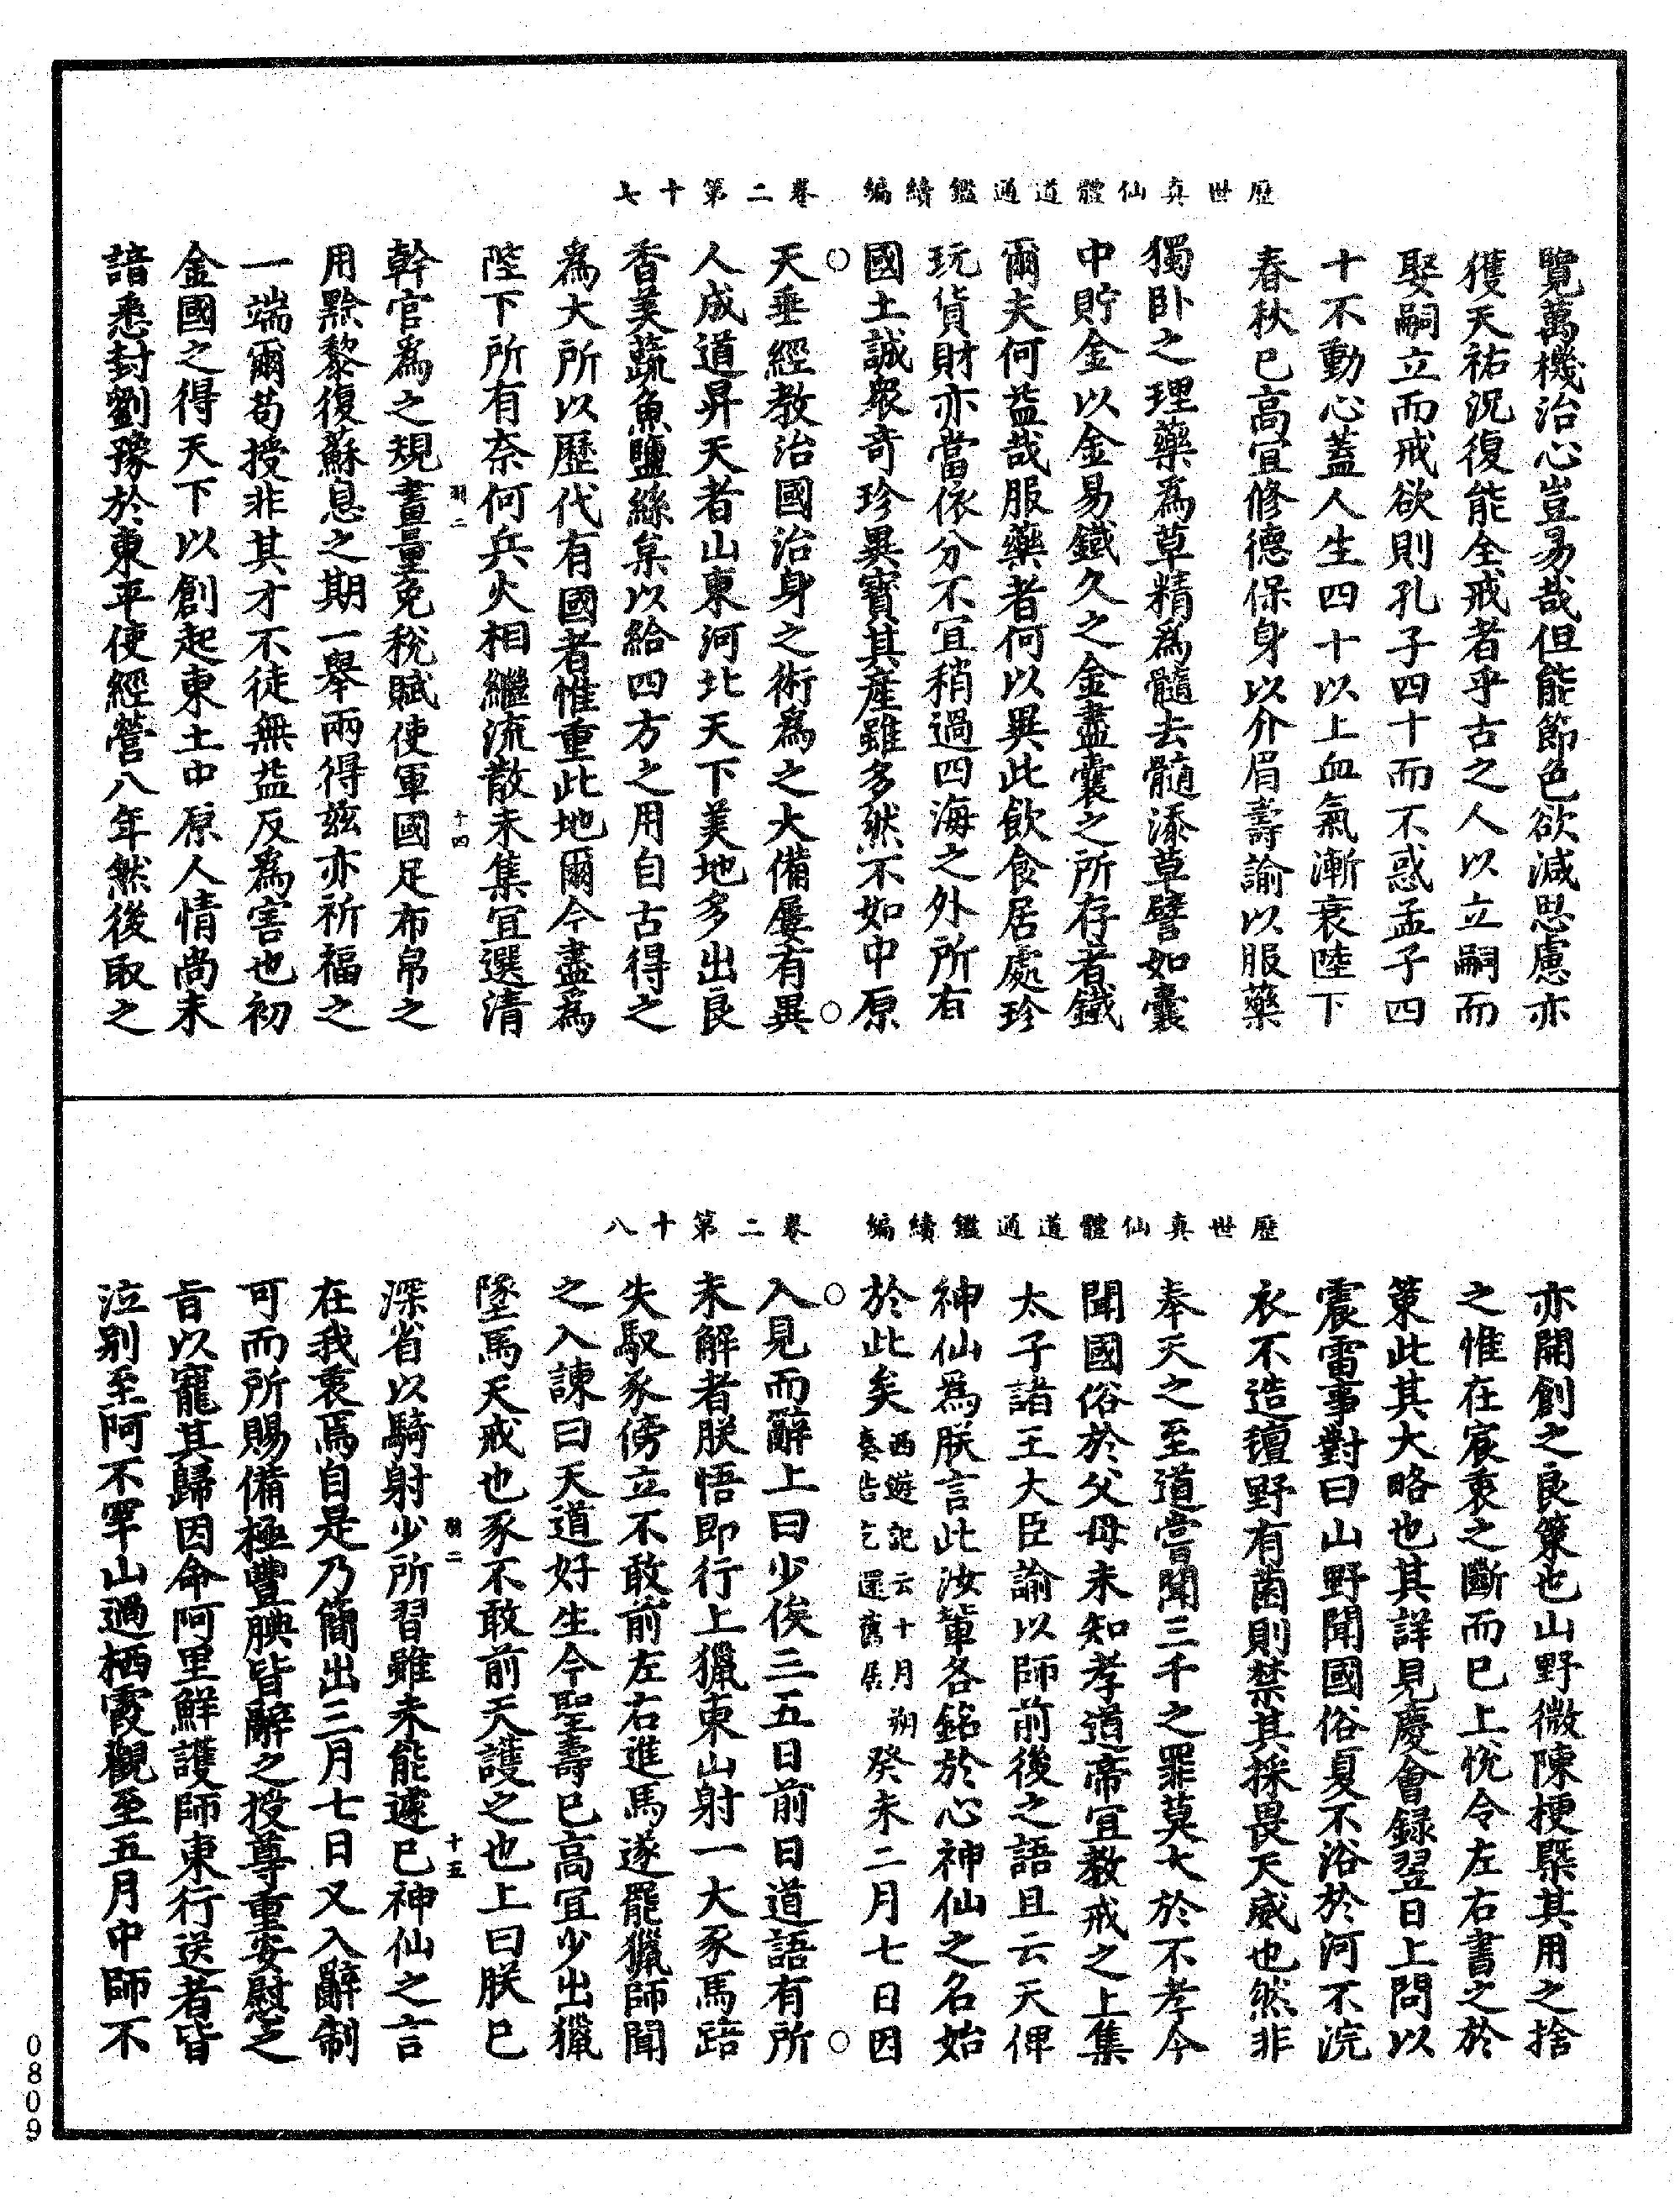 歷世真仙體道通鑑續編　卷二第十七
覽萬機治心豈易哉但能節色欲減思慮亦
獲天祐況復能全戒者乎古之人以立嗣而
娶嗣立而戒欲則孔子四十而不惑孟子四
十不動心蓋人生四十以上血氣漸衰陛下
春秋已高宜修德保身以介眉壽諭以服藥
獨卧之理藥為草精為髓去髓添草譬如囊
中貯金以金易鐵久之金盡囊之所存者鐵
爾夫何益哉服藥者何以異此飲食居處珍
玩貨財亦當依分不宜稍過四海之外所有
國土誠眾奇珍異寶其產雖多然不如中原
天垂經教治國治身之術為之大備屢有異
人成道昇天者山東河北天下美地多出良
香美蔬魚鹽絲枲以給四方之用自古得之
為大所以歷代有國者惟重此地爾今盡為
陛下所有奈何兵火相繼流散未集宜選清
羽二　十四
幹官為之規畫量免稅賦使軍國足布帛之
用黔黎復蘇息之期一舉兩得玆亦祈福之
一端爾苟授非其才不徒無益反為害也初
金國之得天下以創起東土中原人情尚未
諳悉封劉豫於東平使經營八年然後取之
歷世真仙體道通鑑續編　卷二第十八
亦開創之良策也山野微陳梗槩其用之捨
之惟在宸衷之斷而已上悅令左右書之於
策此其大略也其詳見慶會録翌日上問以
震雷事對曰山野聞國俗夏不浴於河不浣
衣不造氊野有菌則禁其採畏天威也然非
奉天之至道嘗聞三千之罪莫大於不孝今
聞國俗於父母未知孝道帝宜教戒之上集
太子諸王大臣諭以師前後之語且云天俾
神仙為朕言此汝輩各銘於心神仙之名始
於此矣西遊記云十月朔奏告乞還舊居癸未二月七日因
入見而辭上曰少俟三五日前日道語有所
未解者朕悟即行上獵東山射一大豕馬踣
失馭豕傍立不敢前左右進馬遂罷獵師聞
之入諫曰天道好生今聖壽已高宜少出獵
墜馬天戒也豕不敢前天護之也上曰朕已
羽二　十五
深省以騎射少所習雖未能遽已神仙之言
在我衷焉自是乃簡出三月七日又入辭制
可而所賜備極豐腆皆辭之授尊重安慰之
旨以寵其歸因命阿里鮮護師東行送者皆
泣别至阿不罕山過栖霞觀至五月中師不
0809